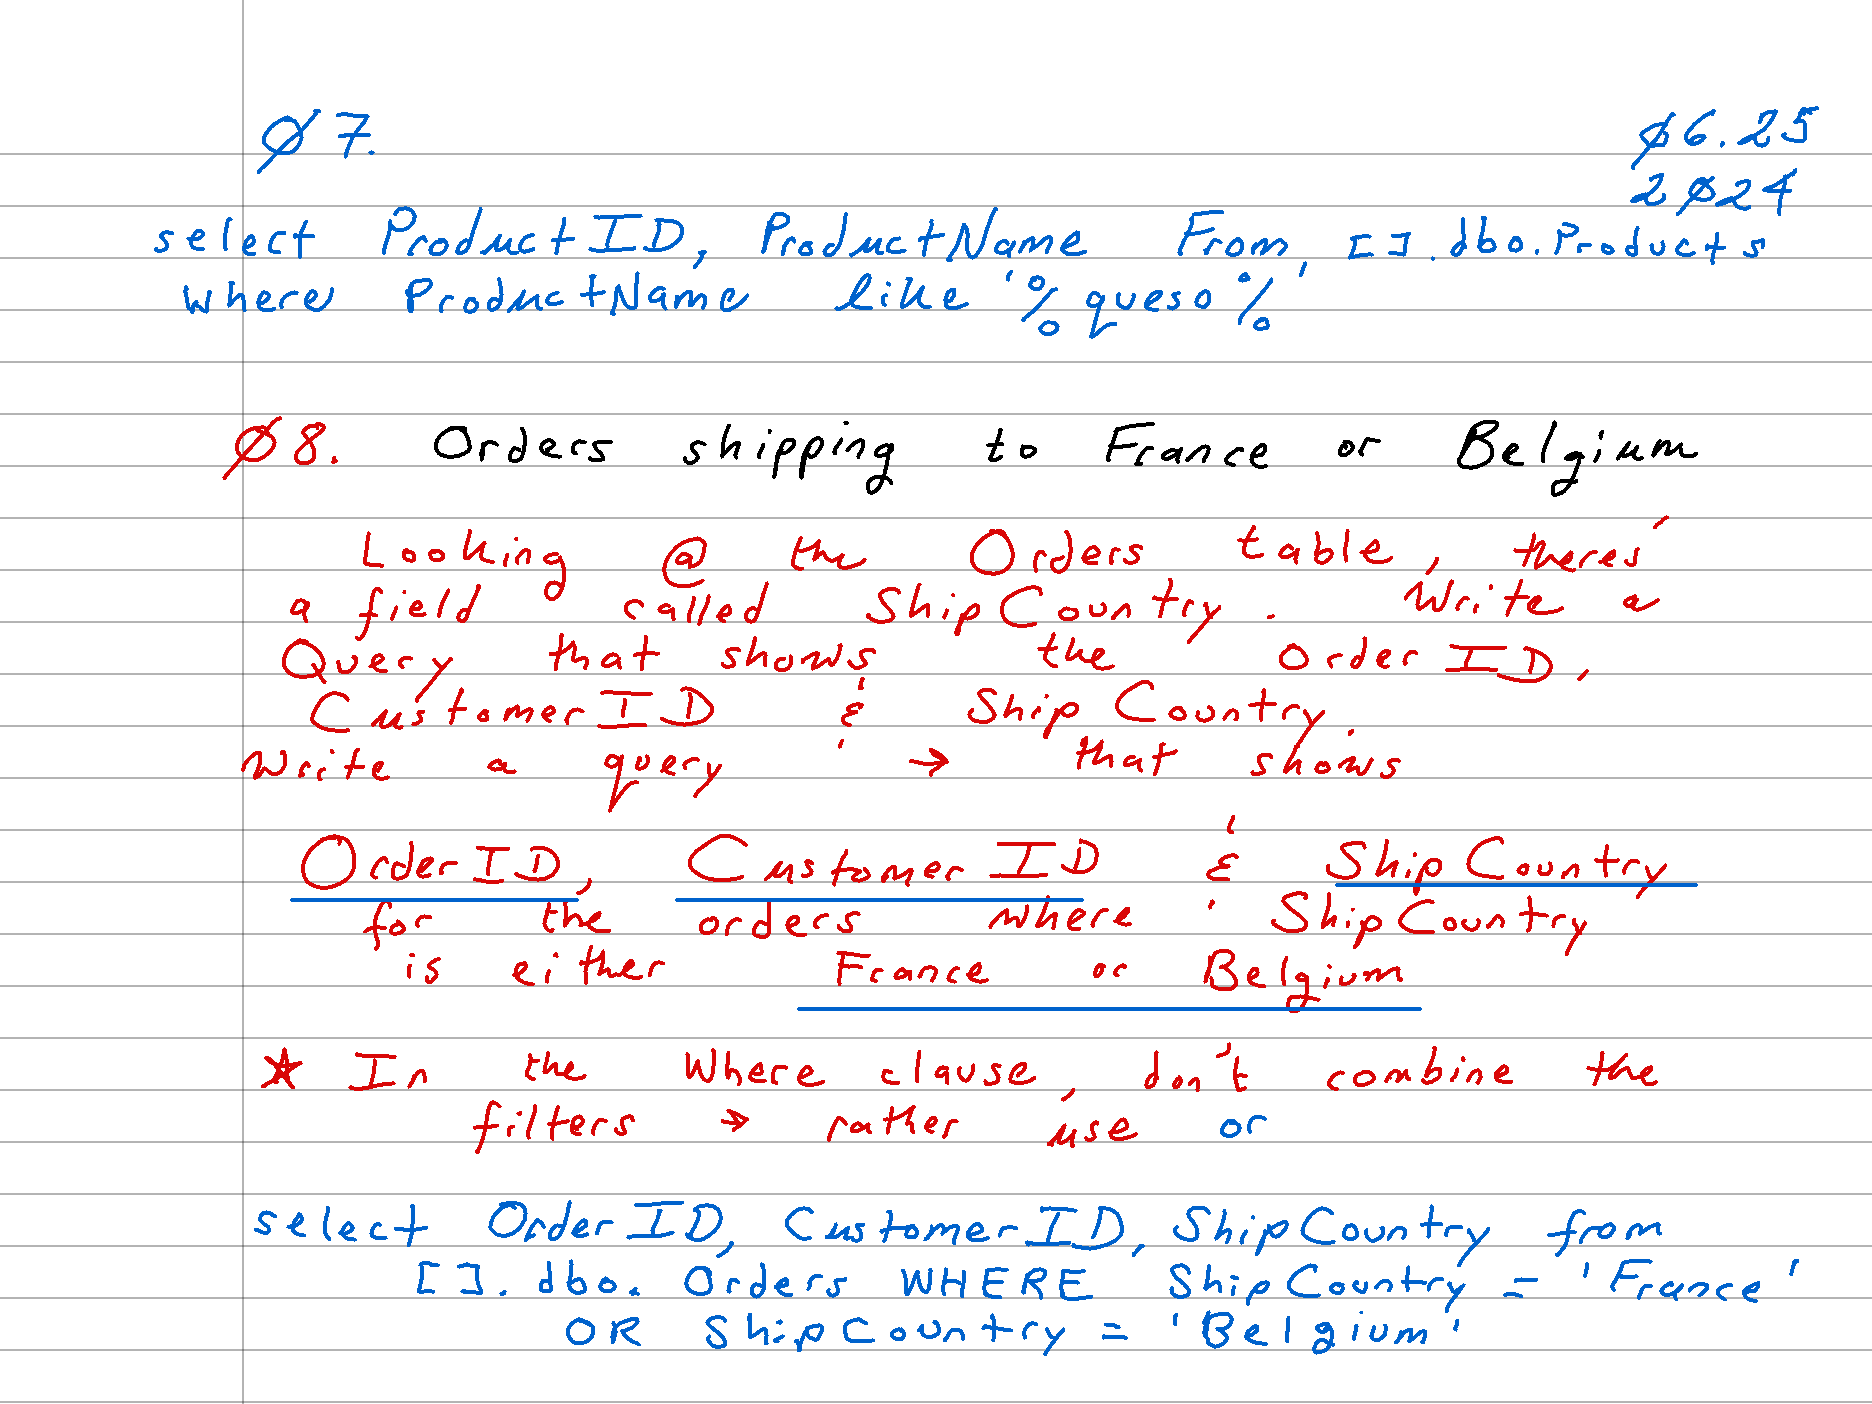 Ø7.
Ø6.25
2Ø24
select ProductID, ProductName From [].dbo.Products
where ProductName like '%queso%'
Ø8. Orders shipping to France or Belgium
Looking @ the Orders table, theres'
a field called ShipCountry. Write a
Query that shows the OrderID,
CustomerID & ShipCountry.
Write a query → that shows
OrderID, CustomerID & ShipCountry
for the orders where ShipCountry
is either France or Belgium
☆ In the Where clause, don't combine the
filters → rather use or
select OrderID, CustomerID, ShipCountry from
[].dbo.Orders WHERE ShipCountry = 'France'
OR ShipCountry = 'Belgium'